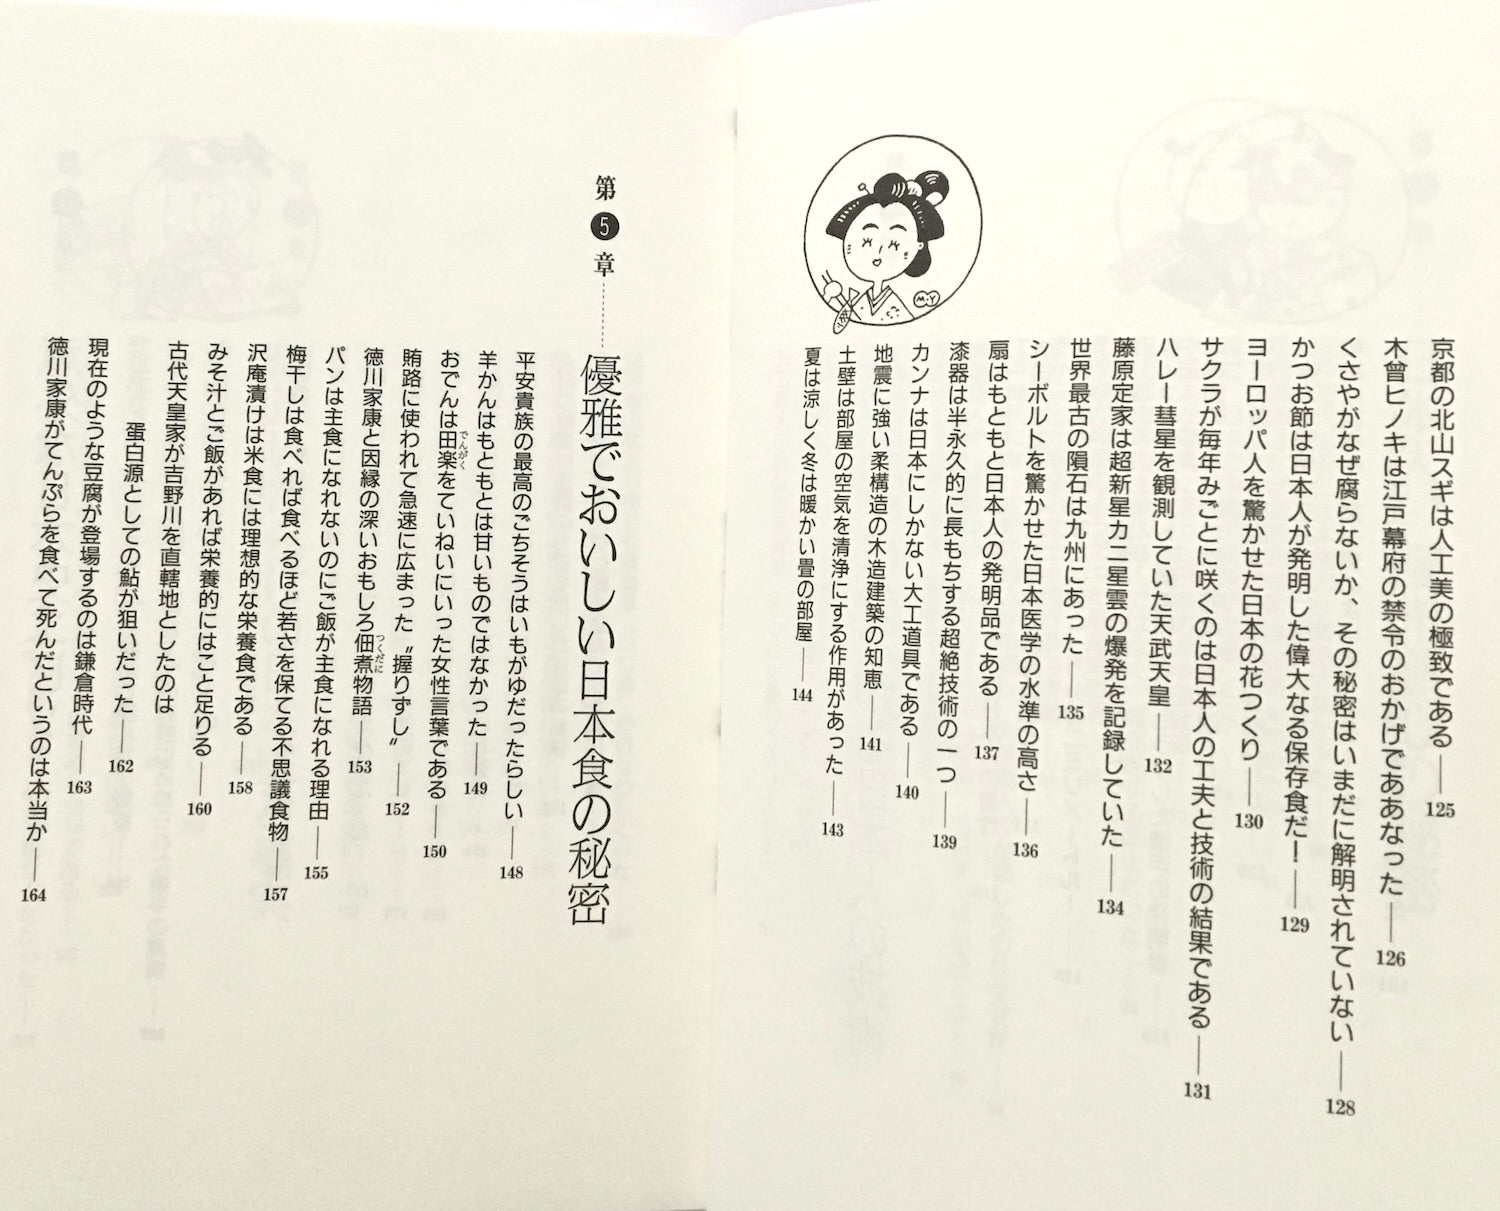 京都の北山スギは人工美の極致である――125
木曾ヒノキは江戸幕府の禁令のおかげでああなった――126
くさやがなぜ腐らないか、その秘密はいまだに解明されていない――128
かつお節は日本人が発明した偉大なる保存食だ！――129
ヨーロッパ人を驚かせた日本の花つくり――130
サクラが毎年みごとに咲くのは日本人の工夫と技術の結果である――131
ハレー彗星を観測していた天武天皇――132
藤原定家は超新星カニ星雲の爆発を記録していた――134
世界最古の隕石は九州にあった――135
シーボルトを驚かせた日本医学の水準の高さ――136
扇はもともと日本人の発明品である――137
漆器は半永久的に長もちする超絶技術の一つ――139
カンナは日本にしかない大工道具である――140
地震に強い柔構造の木造建築の知恵――141
土壁は部屋の空気を清浄にする作用があった――143
夏は涼しく冬は暖かい畳の部屋――144
M.Y
第5章……優雅でおいしい日本食の秘密
平安貴族の最高のごちそうはいもがゆだったらしい――148
羊かんはもともとは甘いものではなかった――149
おでんは田楽をていねいにいった女性言葉である――150
でんがく
賄路に使われて急速に広まった〝握りずし〟――152
徳川家康と因縁の深いおもしろ佃煮物語――153
つくだに
パンは主食になれないのにご飯が主食になれる理由――155
梅干しは食べれば食べるほど若さを保てる不思議食物――157
沢庵漬けは米食には理想的な栄養食である――158
みそ汁とご飯があれば栄養的にはこと足りる――160
古代天皇家が吉野川を直轄地としたのは
蛋白源としての鮎が狙いだった――162
現在のような豆腐が登場するのは鎌倉時代――163
徳川家康がてんぷらを食べて死んだというのは本当か――164